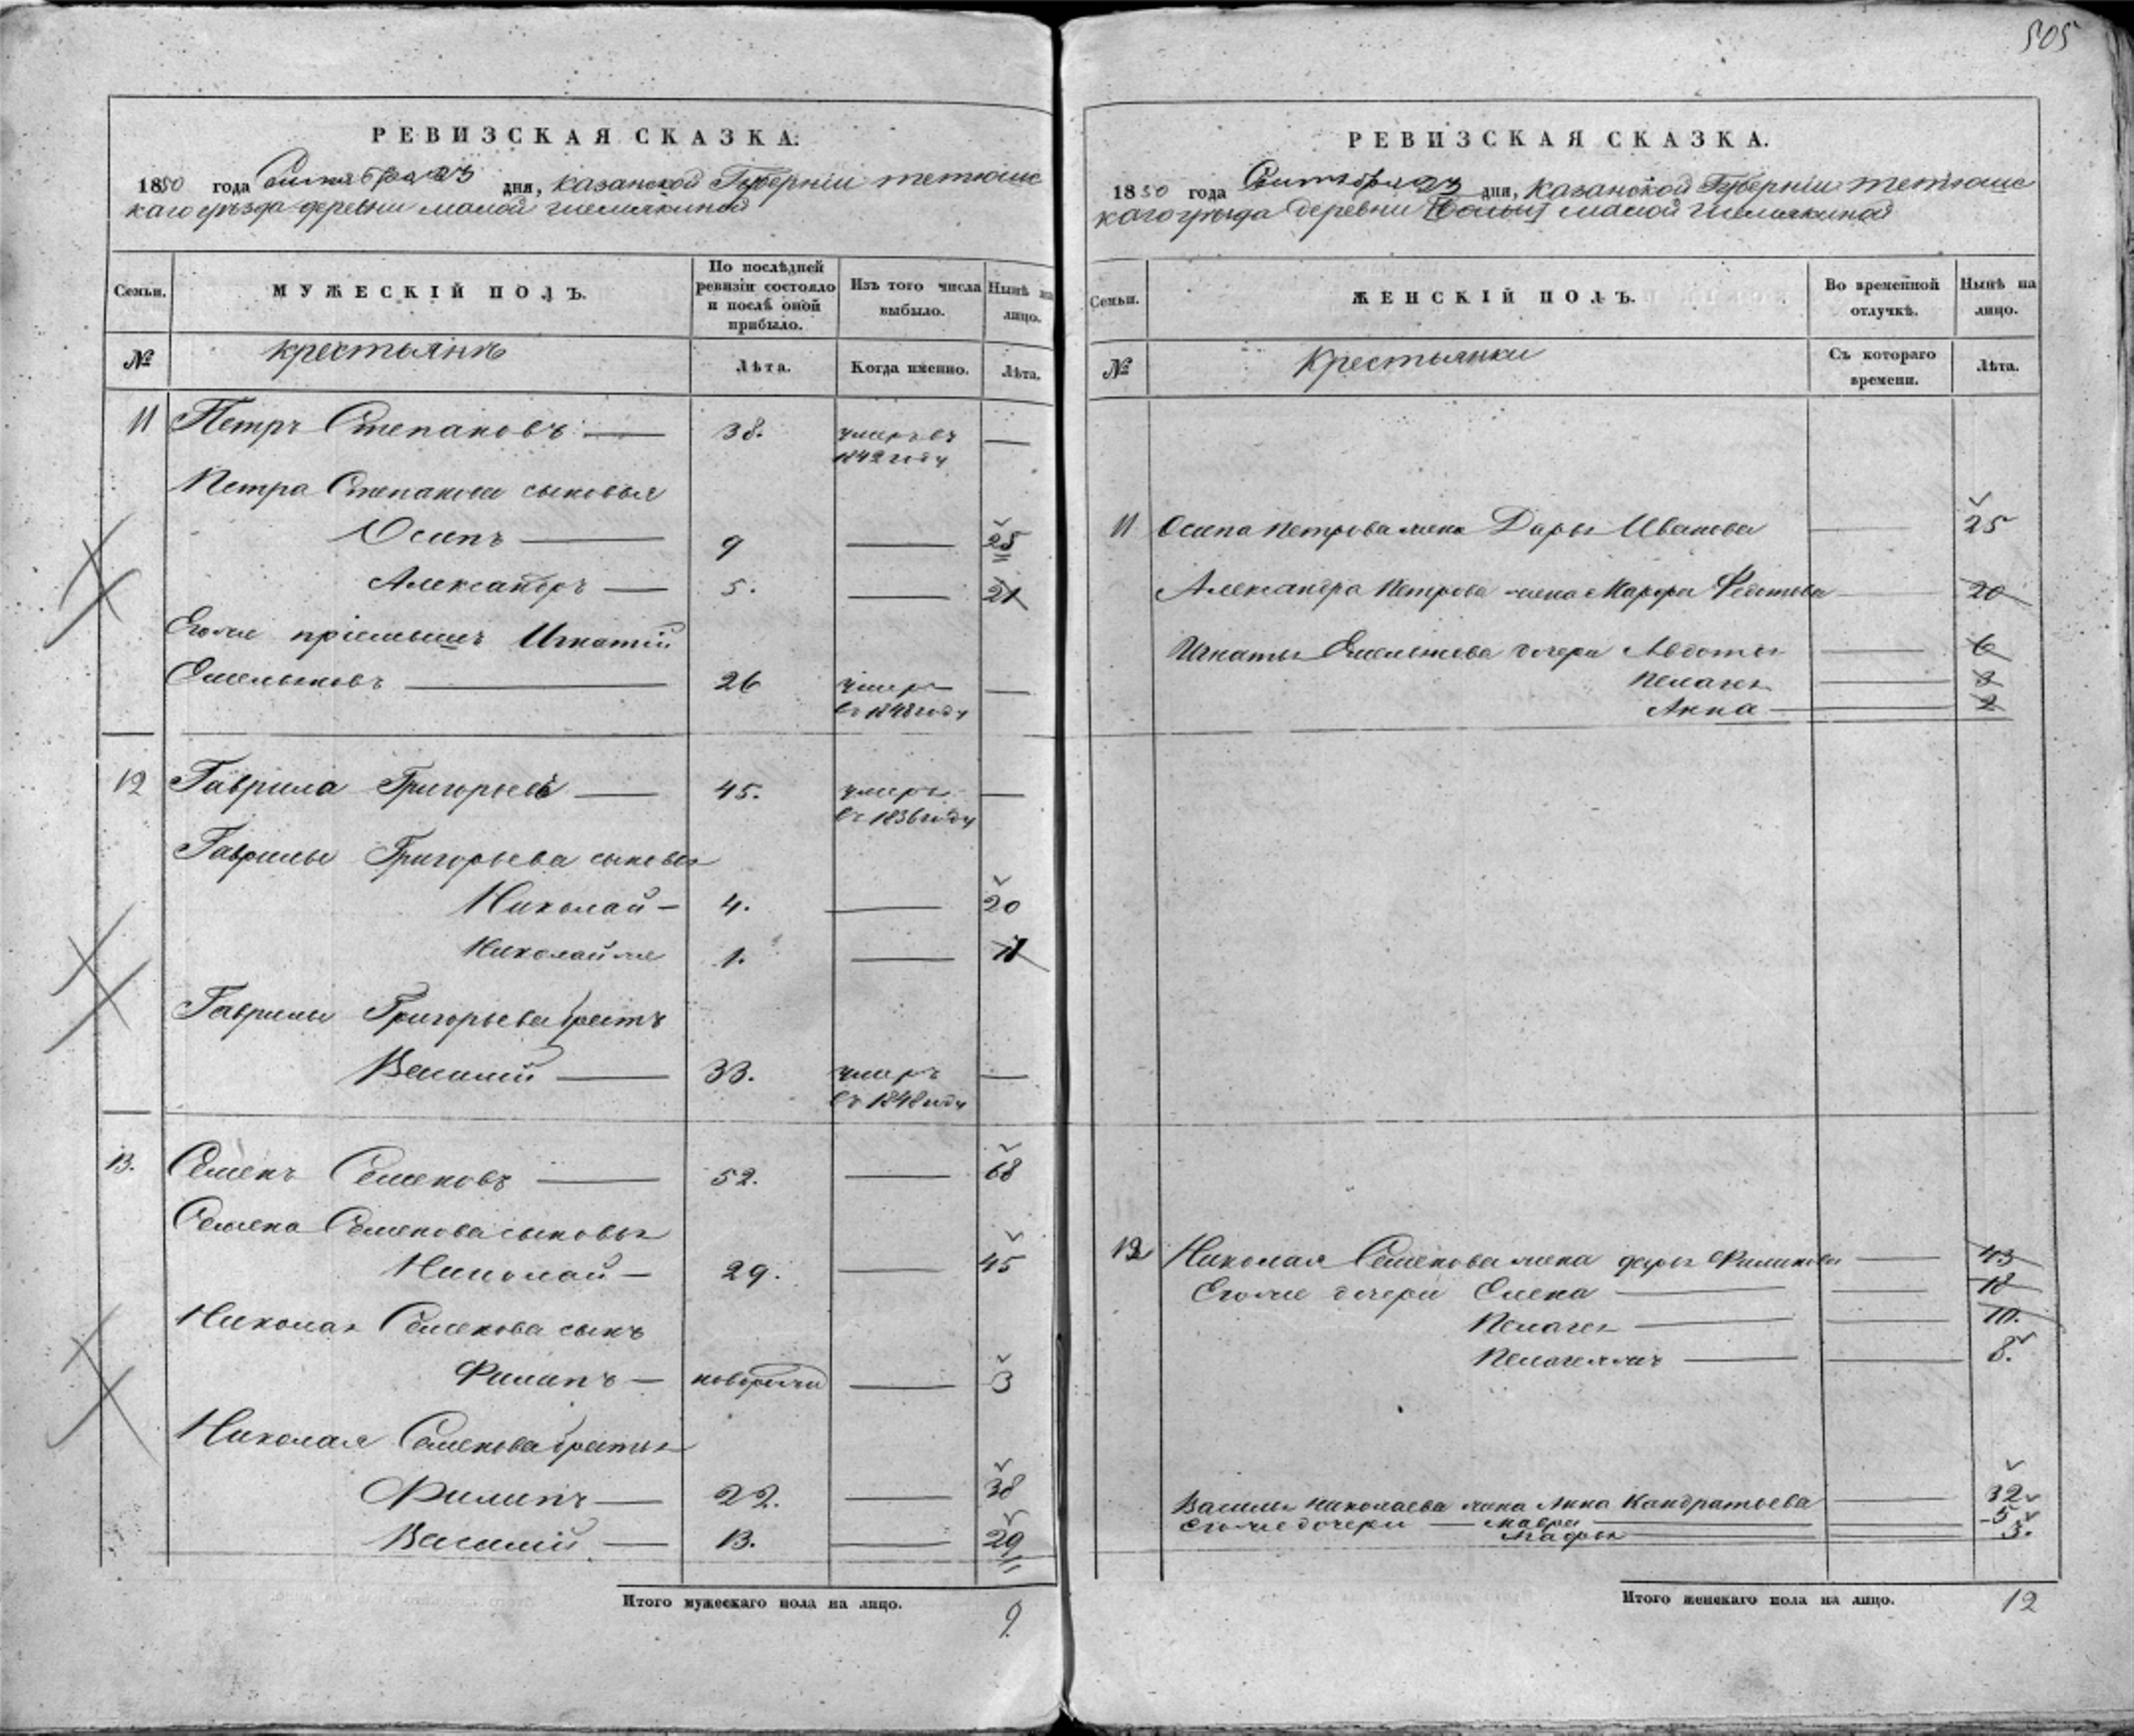 505
РЕВИЗСКАЯ СКАЗКА.
1850 года Сентября 23 дня, Казанской Губернiи тетюшс
каго уѣзда деревни малой шемякиной
Семьи.
МУЖЕСКIЙ ПОЛЪ.
По послѣдней ревизiи состояло и послѣ оной прибыло.
Изъ того числа выбыло.
Нынѣ на лицо.
№
крестьянъ
Лѣта.
Когда именно.
Лѣта.
11 Петръ Степановъ — 38. умеръ въ 1842 году —
Петра Степанова сыновья
Осипъ — 9 — 25
Александръ — 5. — 21
Егоже прiемышъ Игнатiй
Емельяновъ — 26 умеръ въ 1848 году —
12 Гаврила Григорьевъ — 45. умеръ въ 1836 году —
Гаврилы Григорьева сыновья
Николай — 4. — 20
Николай же 1. — 17
Гаврилы Григорьева братъ
Василiй — 33. умеръ въ 1848 году —
13. Семенъ Семеновъ — 52. — 68
Семена Семенова сыновья
Николай — 29. — 45
Николая Семенова сынъ
Филипъ — новорожд — 3
Николая Семенова братья
Филипъ — 22. — 38
Василiй — 13. — 29
Итого мужескаго пола на лицо. 9.
РЕВИЗСКАЯ СКАЗКА.
1850 года Сентября 23 дня, Казанской Губернiи тетюшс
каго уѣзда деревни малой шемякиной
Семьи.
ЖЕНСКIЙ ПОЛЪ.
Во временной отлучкѣ.
Нынѣ на лицо.
№
Крестьянки
Съ котораго времени.
Лѣта.
11 Осипа Петрова жена Дарья Иванова — 25
Александра Петрова жена Марфа Федотова — 20
Игнатья Емельянова дочери Авдотья — 6
Пелагея — 3
Анна — 2
13 Николая Семенова жена дарья Филипова — 43
Егоже дочери Елена — 18
Пелагея — 10.
Пелагея жъ — 8.
Василья Николаева жена Анна Кандратьева — 32
Егоже дочери — мавра — 5
— 3.
Итого женскаго пола на лицо. 12